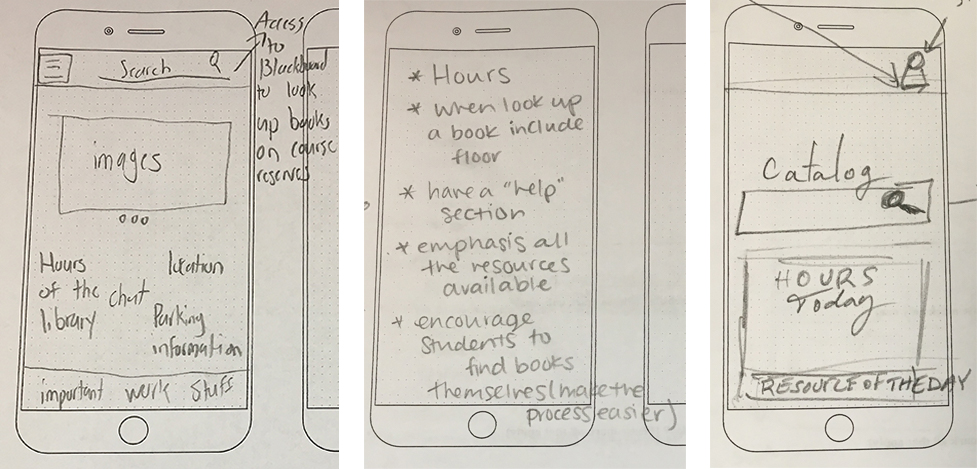 Access
to
Blackboard
to look
up books
on course
reserves
Search
images
Hours
of the
library
location
chat
Parking
information
important work stuff
* Hours
* when look up
a book include
floor
* have a "help"
section
* emphasis all
the resources
available
* encourage
Students to
find books
themselves (make the
process easier)
Catalog
HOURS
Today
RESOURCE OF THE DAY